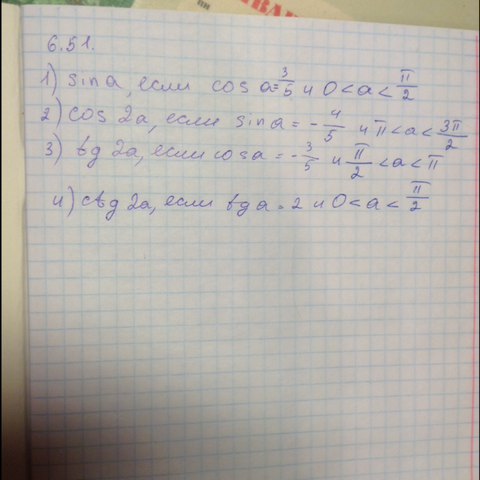 6.51.
1) sin a, если cos a = 3/5 и 0 < a < π/2
2) cos 2a, если sin a = - 4/5 и π < a < 3π/2
3) tg 2a, если cos a = - 3/5 и π/2 < a < π
4) ctg 2a, если tg a = 2 и 0 < a < π/2